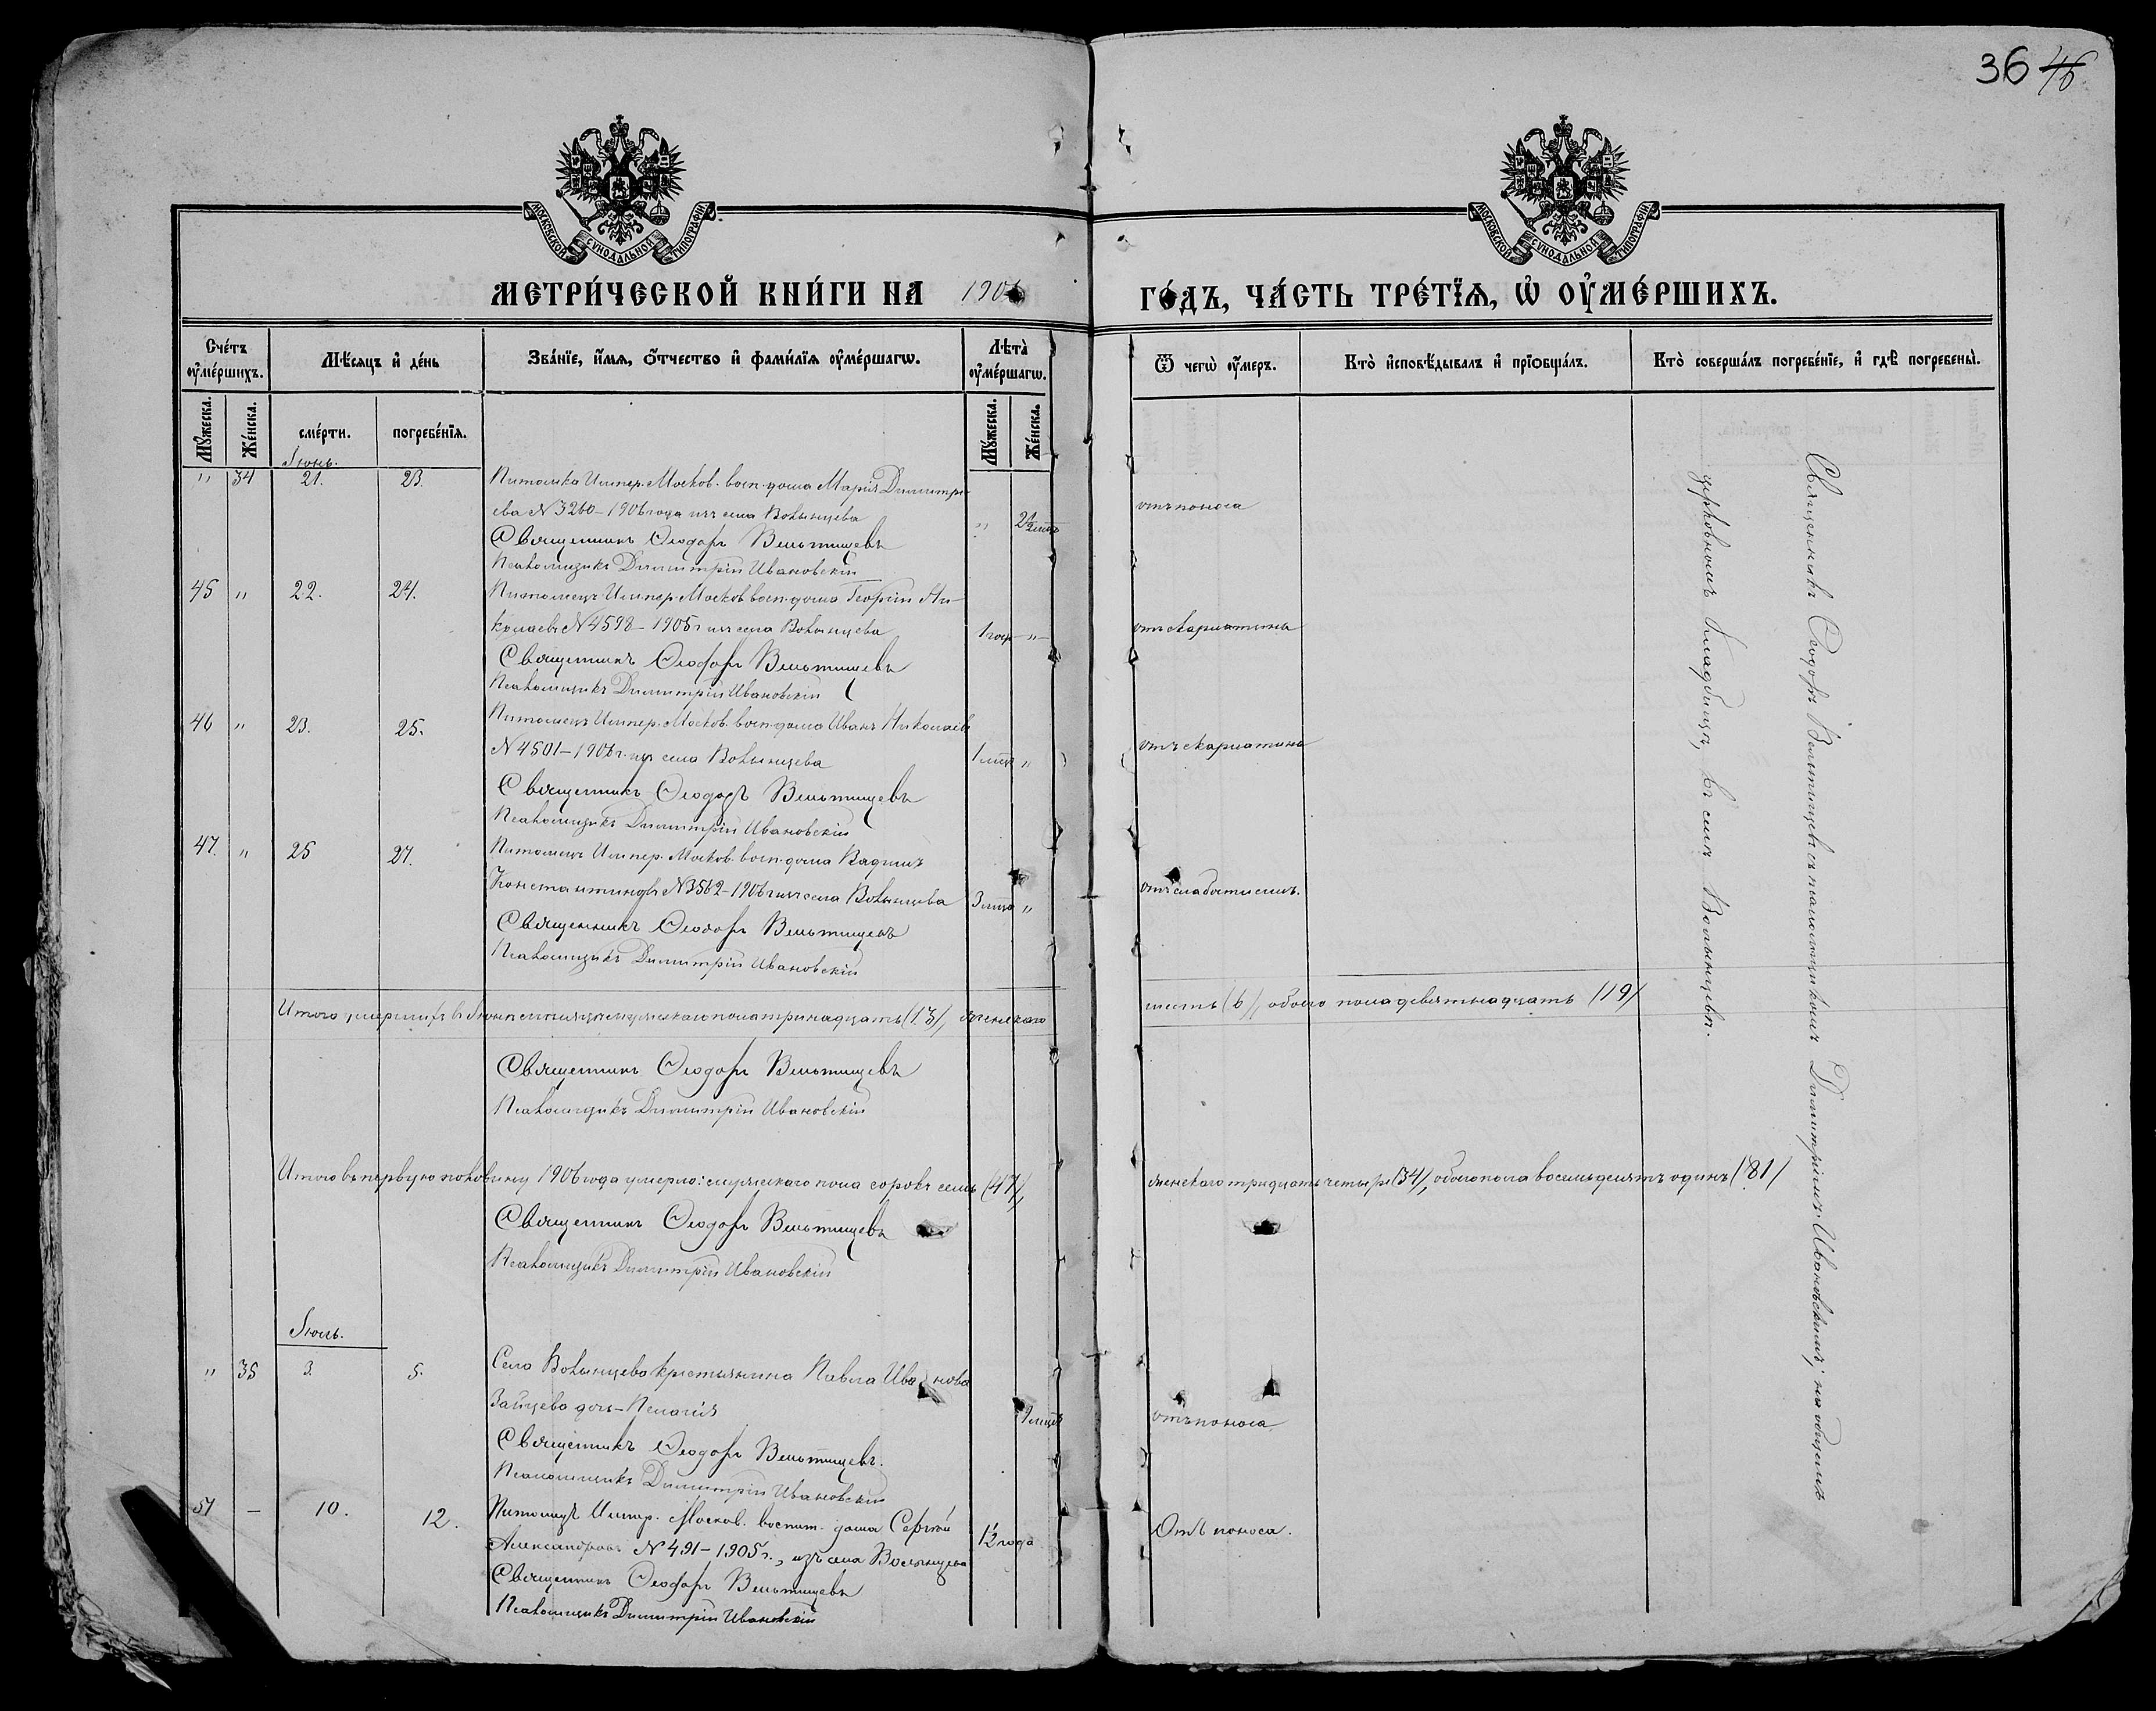 36 46
МОСКОВСКОЙ СУНОДАЛЬНОЙ ТИПОГРАФІИ
МОСКОВСКОЙ СУНОДАЛЬНОЙ ТИПОГРАФІИ
МЕТРИ́ЧЕСКОЙ КНИ́ГИ НА 1906 ГО́ДЪ, ЧА́СТЬ ТРЕ́ТЇѦ, Ѡ҆ ОУ҆МЕ́РШИХЪ.
Счетъ оумершихъ.
Мѣсяцъ и день
Званіе, имя, отчество и фамилія оумершагѡ.
Лѣта оумершагѡ.
Ѿ чегѡ оумеръ.
Кто исповѣдывалъ и пріобщалъ.
Кто совершалъ погребеніе, и гдѣ погребены.
Мужеска.
Женска.
смерти.
погребенія.
Мужеска.
Женска.
Іюнь.
" 34 21. 23. Питомка Импер. Москов. восп. дома Марія Димитрі-
ева N 3260–1906 года изъ села Волынцева " 2½ мѣс. отъ поноса
Священникъ Ѳеодоръ Вельтищевъ
Псаломщикъ Димитрій Ивановскій
45 " 22. 24. Питомецъ Импер. Москов. восп. дома Георгій Ни-
колаевъ N 4598–1905 г. изъ села Волынцева 1 годъ " отъ скарлатины
Священникъ Ѳеодоръ Вельтищевъ
Псаломщикъ Димитрій Ивановскій
46 " 23. 25. Питомецъ Импер. Москов. восп. дома Иванъ Николаевъ
N 4501–1906 г. изъ села Волынцева 1 мѣс. " отъ скарлатины
Священникъ Ѳеодоръ Вельтищевъ
Псаломщикъ Димитрій Ивановскій
47. " 25 27. Питомецъ Импер. Москов. восп. дома Вадимъ
Константиновъ N 3562–1906 г. изъ села Волынцева 3 мѣс. " отъ слабости силъ.
Священникъ Ѳеодоръ Вельтищевъ
Псаломщикъ Димитрій Ивановскій
Итого умершихъ въ Іюнѣ мѣсяцѣ мужескаго пола тринадцать (13), женскаго шесть (6), обоего пола девятнадцать (19)
Священникъ Ѳеодоръ Вельтищевъ
Псаломщикъ Димитрій Ивановскій
Итого въ первую половину 1906 года умерло: мужескаго пола сорокъ семь (47), женскаго тридцать четыре (34), обоего пола восемьдесятъ одинъ (81)
Священникъ Ѳеодоръ Вельтищевъ
Псаломщикъ Димитрій Ивановскій
Іюль.
" 35 3. 5. Села Волынцева крестьянина Павла Иванова
Зайцева дочь – Пелагія отъ поноса
Священникъ Ѳеодоръ Вельтищевъ.
Псаломщикъ Димитрій Ивановскій
– 10. 12. Питомецъ Импер. Москов. воспит. дома Сергѣй
Александровъ N 491–1905 г., изъ села Волынцева 1½ года Отъ поноса.
Священникъ Ѳеодоръ Вельтищевъ
Псаломщикъ Димитрій Ивановскій
Священникъ Ѳеодоръ Вельтищевъ съ псаломщикомъ Димитріемъ Ивановскимъ; на общемъ
церковномъ кладбищѣ, въ селѣ Волынцевѣ.